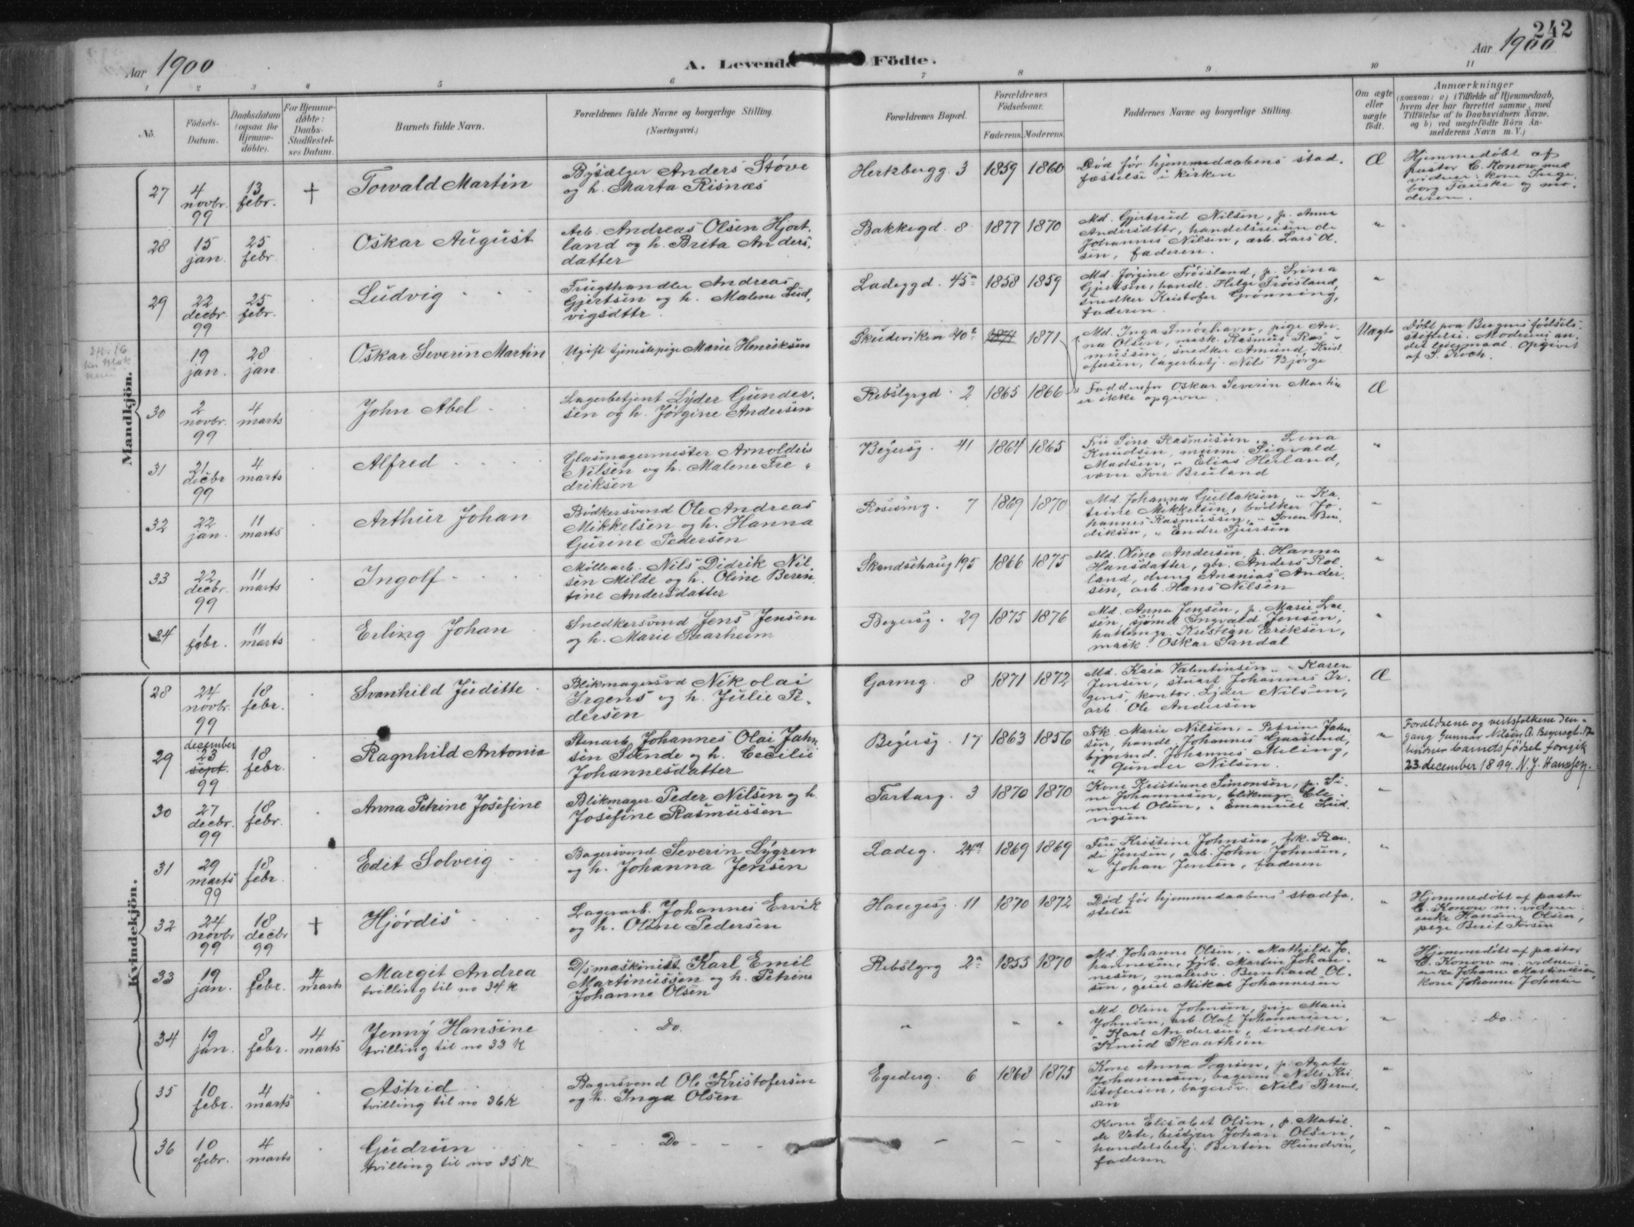 242
Aar 1900
A. Levende Födte.
Aar 1900
1 2 3 4 5 6 7 8 9 10 11
No.
Födsels-Datum.
Daabsdatum (ogsaa for Hjemme-döbte).
For Hjemme-döbte: Daabs-Stadfæstel-ses Datum.
Barnets fulde Navn.
Forældrenes fulde Navne og borgerlige Stilling. (Næringsvei.)
Forældrenes Bopæl.
Forældrenes Födselsaar.
Faderens. Moderens.
Faddernes Navne og borgerlige Stilling.
Om ægte eller uægte födt.
Anmærkninger
(saasom: a) i Tilfælde af Hjemmedaab,
hvem der har forrettet samme, med
Tilföielse af to Daabsvidners Navne,
og b) ved uægtefödte Börn An-
melderens Navn m. V.)
Mandkjön.
27 4 novbr. 99 13 febr. † Torvald Martin
Bÿsælger Anders Störe
og h. Marta Risnæs
Hertzbergg. 3 1859 1860
Död för hjemmedaabens stad-
fæstelse i kirken
Æ
Hjemmedöbt af
pastor C. Konow med
vidner: kone Inge-
borg Fauske og mo-
deren.
28 15 jan. 25 febr. Oskar August
Arb. Andreas Olsen Hjort-
land og h. Brita Anders-
datter
Bakkegd. 8 1877 1870
Md. Gjertrud Nilsen, p. Anna
Andersdttr, handelsreisende
Johannes Nilsen, arb. Lars Ol-
sen, faderen.
"
29 22 decbr. 99 25 febr. Ludvig
Frugthandler Andreas
Gjertsen og h. Malene Lud-
vigsdttr.
Ladeggd. 45a 1858 1859
Md. Jörgine Tröisland, p. Trina
Gjertsen, handl. Helge Tröisland,
snedker Kristofer Grönning,
faderen.
"
19 jan. 28 jan Oskar Severin Martin
Ugift tjenestepige Marie Henriksen
Skudeviken 40b 1871
Md. Inga Smörhavn, pige An-
na Olsen, mask. Rasmus Ras-
mussen, snedker Amund Krist-
ofersen, lagerbetj. Nils Bjørge
Uægte
Döbt paa Bergens födsels-
stiftelse. Moderens an-
det leiermaal. Opgivet
af S. Koch.
30 2 novbr. 99 4 marts John Abel
Lagerbetjent Lÿder Gunder-
sen og h. Jörgine Andersen
Rebslgrgd. 2 1865 1866
Fadderne for Oskar Severin Martin
er ikke opgivne.
Æ
31 21 decbr 99 4 marts Alfred
Glasmagermester Arnoldus
Nilsen og h. Malene Fre-
driksen
Beyersg. 41 1864 1865
Fru Sine Rasmussen, " Lina
Knudsen, murm. Sigvald
Madsen, " Elias Herland,
vom Iver Bruland
"
32 22 jan. 11 marts Arthur Johan
Bödkersvend Ole Andreas
Mikkelsen og h. Hanna
Gurine Pedersen
Rosesmg. 7 1869 1870
Md. Johanna Gullaksen, " Ka-
trine Mikkelsen, bödker Jo-
hannes Rasmussen, " Sören Ben-
diksen, " Endre Iversen
"
33 22 decbr. 99 11 marts Ingolf
Möllearb. Nils Didrik Nil-
sen Milde og h. Oline Beren-
tine Andersdatter
Skandsehaug. 195 1866 1875
Md. Oline Andersen, p. Hanna
Hansdatter, gbr. Anders Rol-
land, dreng Ananias Ander-
sen, arb. Hans Nilsen
"
34 1 febr. 11 marts Erling Johan
Snedkersvend Jens Jensen
og h. Marie Saarheim
Beyersg. 29 1875 1876
Md. Anna Jensen, p. Marie Lar-
sen, sjömd. Ingvald Jensen,
hattemgr. Kristian Eriksen,
mask. Oskar Sandal
"
Kvindekjön.
28 24 novbr. 99 18 febr. Svanhild Juditte
Blikmagersvd Nikolai
Irgens og h. Julie Pe-
dersen
Garmg. 8 1871 1872
Md. Kaia Valentinsen, " Karen
Jensen, stuert Johannes Ir-
gens, kontor. Lyder Nilsen,
arb. Ole Andersen
Æ
29 december 23 sept. 99 18 febr. Ragnhild Antonia
Stenarb. Johannes Olai Jahn-
sen Stende og h. Cecilie
Johannesdatter
Beyersg. 17 1863 1856
Frk. Marie Nilsen, " Petrine Jahn-
sen, handl. Johannes Grastund,
byggmd. Johannes Atling,
" Gunder Nilsen
"
Forældrene og vertsfolkene den-
gang Gunnar Nilsen O. Beyersgt. 17
vidner barnets fødsel foregik
23 december 1899. N. J. Hansen.
30 27 decbr. 99 18 febr. Anna Petrine Josefine
Blikmager Peder Nilsen og h.
Josefine Rasmussen
Tartarg. 3 1870 1870
Kone Kristiane Simonsen, p. Si-
ne Johannesen, blikmgr. Cle-
ment Olsen, " Emanuel Lud-
vigsen
"
31 29 marts 99 18 febr. Edit Solveig
Bagersvend Severin Lÿgren
og h. Johanna Jensen
Ladeg. 24a 1869 1869
Fru Kristine Johnsen, frk. Ran-
di Jensen, arb. John Johnsen,
" Johan Jensen, faderen
"
32 24 novbr 99 18 decbr 99 † Hjördis
Lagerarb. Johannes Ervik
og h. Oline Pedersen
Havegsg. 11 1870 1872
Död för hjemmedaabens stadfæ-
stelse
"
Hjemmedöbt af pastor
C. Konow m. vidner
enke Hansine Olsen,
pige Berit Iversen
33 19 jan. 8 febr. 4 marts Margit Andrea
tvilling til no 34 k
D/smaskinist Karl Emil
Martinussen og h. Petrine
Johanne Olsen
Rebslgrg 2a 1855 1870
Md Johanne Olsen, " Mathilde Jo-
hannesen, fyrb. Martin Johan-
nesen, malersv. Bernhard Ol-
sen, gut Mikal Johannesen
"
Hjemmedöbt af pastor
C. Konow m. vidner:
enke Johanne Martinussen
kone Johanne Johnsen
34 19 jan. 8 febr. 4 marts Jennÿ Hansine
tvilling til no 33 k
Do.
" " "
Md. Oline Johnsen, pige Marie
Johnsen, arb. Olaf Johannesen,
" Karl Andersen, snedker
Knud Skaathun
"
Do.
35 10 febr. 4 marts Astrid
tvilling til no 36 k
Bagersvend Ole Kristofersen
og h. Inga Olsen
Egedesg. 6 1868 1875
Kone Anna Lorgsen, p. Agate
Johannesen, bagersv. Nils Kri-
stofersen, bagersv. Nils Bernt-
sen
"
36 10 febr. 4 marts Gudrun
tvilling til no 35 k
Do
Kone Elisabet Olsen, p. Matil-
de Vete, Johan Olsen,
handelsbetj. Bertin Hundvin,
faderen
"